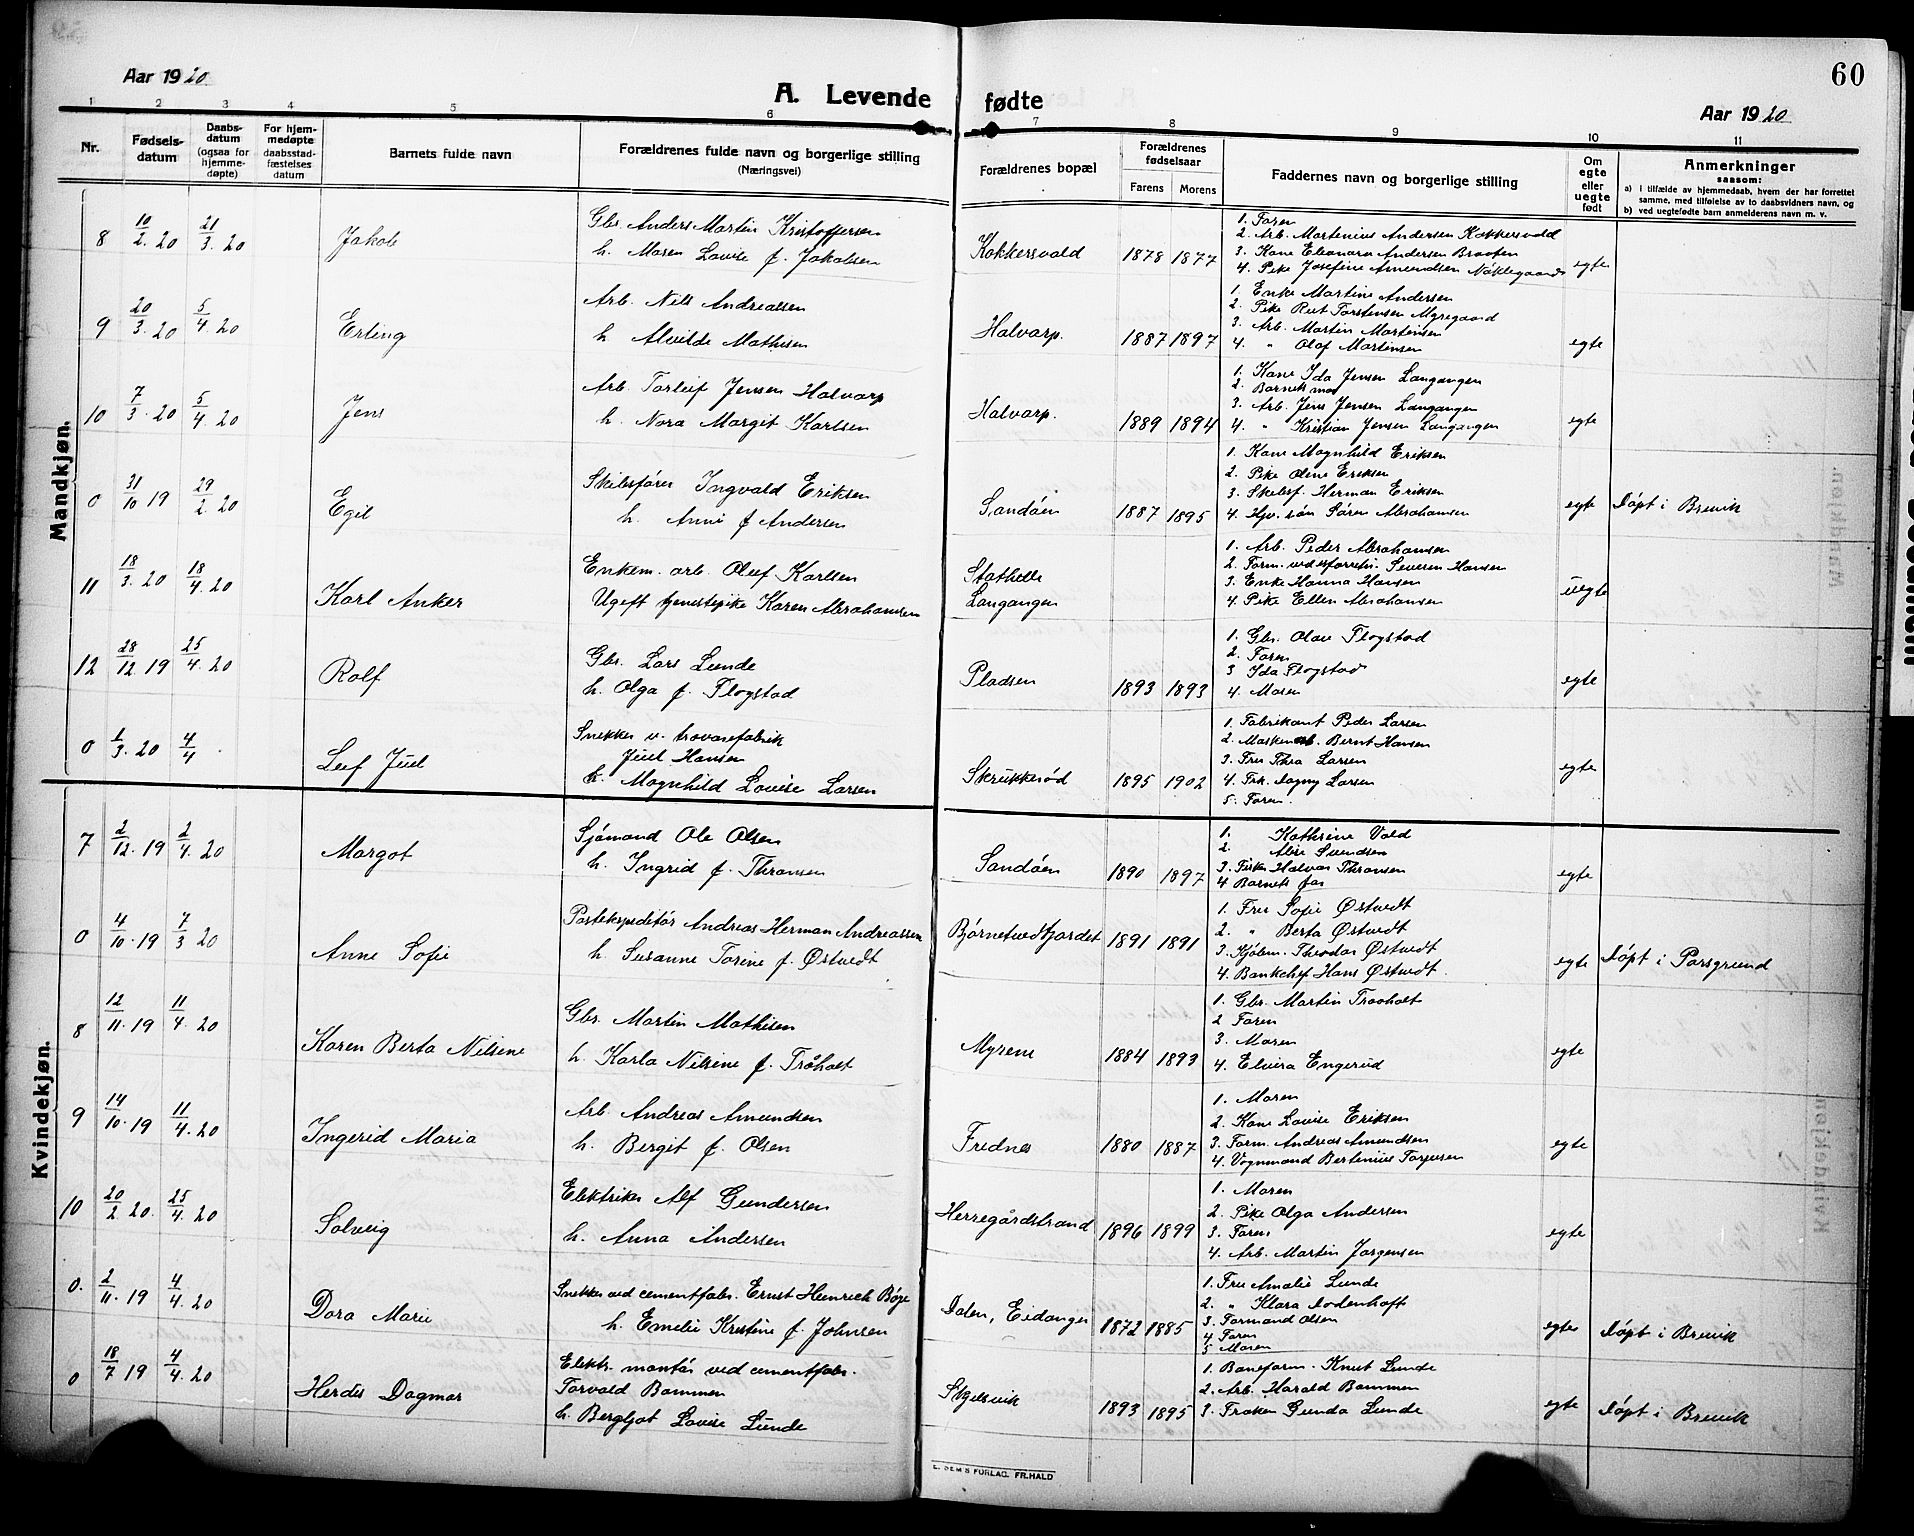 Aar 1920
A. Levende fødte
Aar 1920
60
1 2 3 4 5 6 7 8 9 10 11
Nr.
Fødsels-
datum
Daabs-
datum
(ogsaa for
hjemme-
døpte)
For hjem-
medøpte
daabsstad-
fæstelses
datum
Barnets fulde navn
Forældrenes fulde navn og borgerlige stilling
(Næringsvei)
Forældrenes bopæl
Forældrenes
fødselsaar
Farens Morens
Faddernes navn og borgerlige stilling
Om
egte
eller
uegte
født
Anmerkninger
saasom:
a) i tilfælde av hjemmedaab, hvem der har forrettet
samme, med tilføielse av to daabsvidners navn, og
b) ved uegtefødte barn anmelderens navn m. v.
Mandkjøn.
8 10/2. 20 21/3. 20 Jakob
Gbr. Anders Martin Kristoffersen
h. Maren Lovise f. Jakobsen
Kokkersvold 1878 1877
1. Faren
2. Arb. Martinius Andersen Kokkersvold
3. Kone Eleanora Andersen Braaten
4. Pike Josefine Amundsen Nøklegaard
egte
9 20/3. 20 5/4. 20 Erling
Arb. Nils Andreassen
h Alvilde Mathisen
Halvarp. 1887 1897
1. Enke Martine Andersen
2. Pike Rut Torstensen Myregaard
3. Arb. Martin Martinsen
4. " Olaf Martinsen
egte
10 7/3. 20 5/4. 20 Jens
Arb. Torleif Jensen Halvarp
h. Nora Margit Karlsen
Halvarp. 1889 1894
1. Kone Ida Jensen Langangen
2. Barnets mor
3. Arb. Jens Jensen Langangen
4. " Kristian Jensen Langangen
egte
0 31/10 19 29/2. 20 Egil
Skibsfører Ingvald Eriksen
h. Anni f Andersen
Sandøen 1887 1895
1. Kone Magnhild Eriksen
2. Pike Oline Eriksen
3. Skibsf. Herman Eriksen
4. Hjv. søn Søren Abrahamsen
egte Døpt i Brevik
11 18/3. 20 18/4. 20 Karl Anker
Enkem. arb. Oluf Karlsen
Ugift tjenestepike Karen Abrahamsen
Stathelle
Langangen
1. Arb. Peder Abrahamsen
2. Form. ved isforretn. Severin Hansen
3. Enke Hanna Hansen
4. Pike Ellen Abrahamsen
uegte
12 28/12 19 25/4. 20 Rolf
Gbr. Lars Lunde
h. Olga f. Flogstad
Pladsen 1893 1893
1. Gbr. Olav Flogstad
2. Faren
3 Ida Flogstad
4. Moren
egte
0 1/3. 20 4/4 Leif Juul
Snekker v. trævarefabrik
Juul Hansen
h. Magnhild Lovise Larsen
Skrukkerød 1895 1902
1. Fabrikant Peder Larsen
2. Maskinarb. Bernt Hansen
3. Fru Thea Larsen
4. Frk. Dagny Larsen
5. Faren.
egte
Kvindekjøn.
7 2/12. 19 2/4. 20 Margot
Sjømand Ole Olsen
h. Ingrid f. Thransen
Sandøen 1890 1897
1. Kathrine Vold
2. Alise Svendsen
3. Fisker Halvor Thransen
4 Barnets far
egte
0 4/10. 19 7/3 20 Anne Sofie
Postekspeditør Andreas Herman Andreassen
h. Susanne Torine f. Østvedt
Bjørnetvedtfjordet 1891 1891
1. Fru Sofie Østvedt
2. " Berta Østvedt
3. Kjøbm. Theodor Østvedt
4. Bankchef Hans Østvedt.
egte Døpt i Porsgrund
8 12/11. 19 11/4. 20 Karen Berta Nilsine
Gbr. Martin Mathisen
h. Karla Nilsine f. Tråholt
Myrene 1884 1893
1. Gbr. Martin Traaholt
2 Faren
3. Moren
4. Elvira Engerud
egte
9 14/10. 19 11/4. 20 Ingerid Maria
Arb. Andreas Amundsen
h. Bergit f. Olsen
Frednes 1880 1887
1. Moren
2. Kone Lovise Eriksen
3. Form. Andreas Amundsen
4. Vognmand Bertinius Torjusen
egte
10 20/2. 20. 25/4. 20 Solveig
Elektriker Alf Gundersen
h. Anna Andersen
Herregårdstrand 1896 1899
1. Moren
2. Pike Olga Andersen
3. Faren
4. Arb. Martin Jørgensen
egte
0. 2/11. 19 4/4. 20 Dora Marie
Snekker ved cementfabr. Ernst Heinrich Bøge
h. Emelie Kristine f. Johnsen
Dalen, Eidanger 1872 1885
1. Fru Amalie Lunde
2. " Klara Dodenhoft
3. Formand Olsen
4. Faren
5 Moren
egte Døpt i Brevik
0 18/7 19 4/4. 20 Herdis Dagmar
Elektr. montør ved cementfabr.
Torvald Bommen
h. Bergljot Lovise Lunde
Skjelsvik 1893 1895
1. Baneform. Knut Lunde
2. Arb. Harald Bommen
3. Frøken Gunda Lunde
egte Døpt i Brevik
E. SEM'S FORLAG. FR.HALD